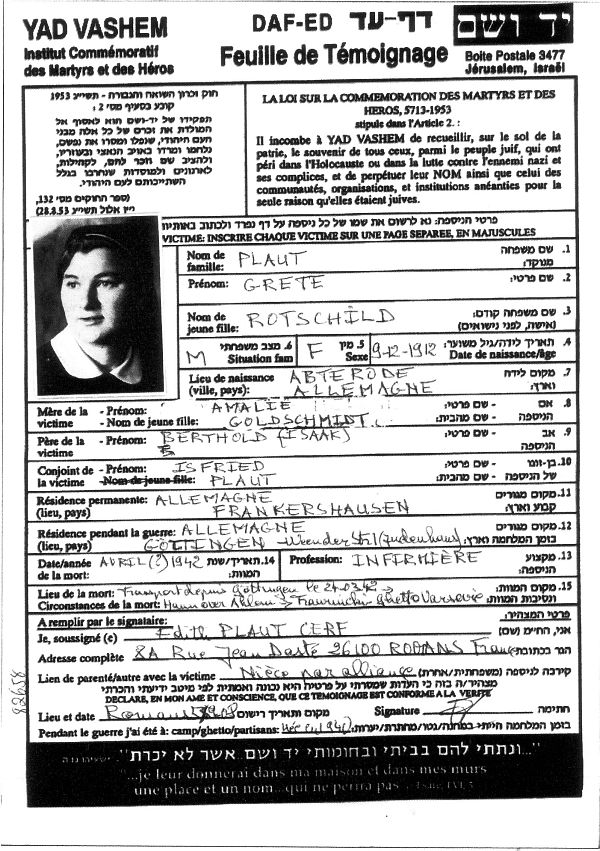 YAD VASHEM
Institut Commémoratif
des Martyrs et des Héros
DAF-ED דף-עד
Feuille de Témoignage
יד ושם
Boite Postale 3477
Jérusalem, Israël
חוק זכרון השואה והגבורה - תשי"ג 1953
קובע בסעיף מס' 2 :
תפקידו של יד-ושם הוא לאסוף אל
המולדת את זכרם של כל אלה מבני
העם היהודי, שנפלו ומסרו את נפשם,
נלחמו ומרדו באויב הנאצי ובעוזריו,
ולהציב שם וזכר להם, לקהילות,
לארגונים ולמוסדות שנחרבו בגלל
השתייכותם לעם היהודי.
(ספר החוקים מס' 132,
י"ז אלול תשי"ג 28.8.53)
LA LOI SUR LA COMMEMORATION DES MARTYRS ET DES
HEROS, 5713-1953
stipule dans l'Article 2. :
Il incombe à YAD VASHEM de recueillir, sur le sol de la
patrie, le souvenir de tous ceux, parmi le peuple juif, qui ont
péri dans l'Holocauste ou dans la lutte contre l'ennemi nazi et
ses complices, et de perpétuer leur NOM ainsi que celui des
communautés, organisations, et institutions anéanties pour la
seule raison qu'elles étaient juives.
פרטי הניספה: נא לרשום את שמו של כל ניספה על דף נפרד ולכתוב באותיות
VICTIME: INSCRIRE CHAQUE VICTIME SUR UNE PAGE SEPAREE, EN MAJUSCULES
Nom de famille: PLAUT 1. שם משפחה
Prénom: GRETE 2. שם פרטי:
Nom de jeune fille: ROTSCHILD 3. שם משפחה קודם: (אישה, לפני נישואים)
M 6. מצב משפחתי Situation fam F 5. מין Sexe 9-12-1912 4. תאריך לידה/גיל משוער: Date de naissance/âge
Lieu de naissance (ville, pays): ABTERODE ALLEMAGNE 7. מקום לידה וארץ:
Mère de la victime - Prénom: AMALIE 8. אם הניספה - שם פרטי:
- Nom de jeune fille: GOLDSCHMIDT - שם מהבית:
Père de la victime - Prénom: BERTHOLD (ISAAK) 9. אב הניספה - שם פרטי:
Conjoint de la victime - Prénom: ISFRIED 10. בן-זוגו של הניספה - שם פרטי:
- Nom de jeune fille: PLAUT - שם מהבית:
Résidence permanente: (lieu, pays) ALLEMAGNE FRANKERSHAUSEN 11. מקום מגורים קבוע וארץ:
Résidence pendant la guerre: (lieu, pays) ALLEMAGNE 12. מקום מגורים
GÖTTINGEN Weender Str. 1 (Judenhaus) בזמן המלחמה וארץ:
Date/année de la mort: AVRIL (?) 1942 14. תאריך/שנת המוות: Profession: INFIRMIÈRE 13. מקצוע הניספה:
Lieu de la mort: Transport depuis Göttingen le 15. מקום המוות:
Circonstances de la mort: Hannover Ahlem → Ghetto Varsovie ונסיבות המוות:
A remplir par le signataire: פרטי המצהיר:
Je, soussigné (e) Edith PLAUT CERF אני, החי"מ (שם)
Adresse complète 8A Rue Jean Dasté 26100 ROMANS France הגר בכתובת
Lien de parenté/autre avec la victime Nièce par alliance קירבה לניספה (משפחתית/אחרת)
מצהיר/ה בזה כי העדות שמסרתי על פרטיה היא נכונה ואמיתית לפי מיטב ידיעתי והכרתי
DECLARE, EN MON AME ET CONSCIENCE, QUE CE TEMOIGNAGE EST CONFORME A LA VERITE
Lieu et date Romans מקום ותאריך רישום Signature חתימה
Pendant le guerre j'ai été à: camp/ghetto/partisans: בזמן המלחמה הייתי במחנה/גטו/מחתרת/יערות:
82658
"...ונתתי להם בביתי ובחומותי יד ושם...אשר לא יכרת" ישעיהו נו ה
"...je leur donnerai dans ma maison et dans mes murs
une place et un nom...qui ne perira pas